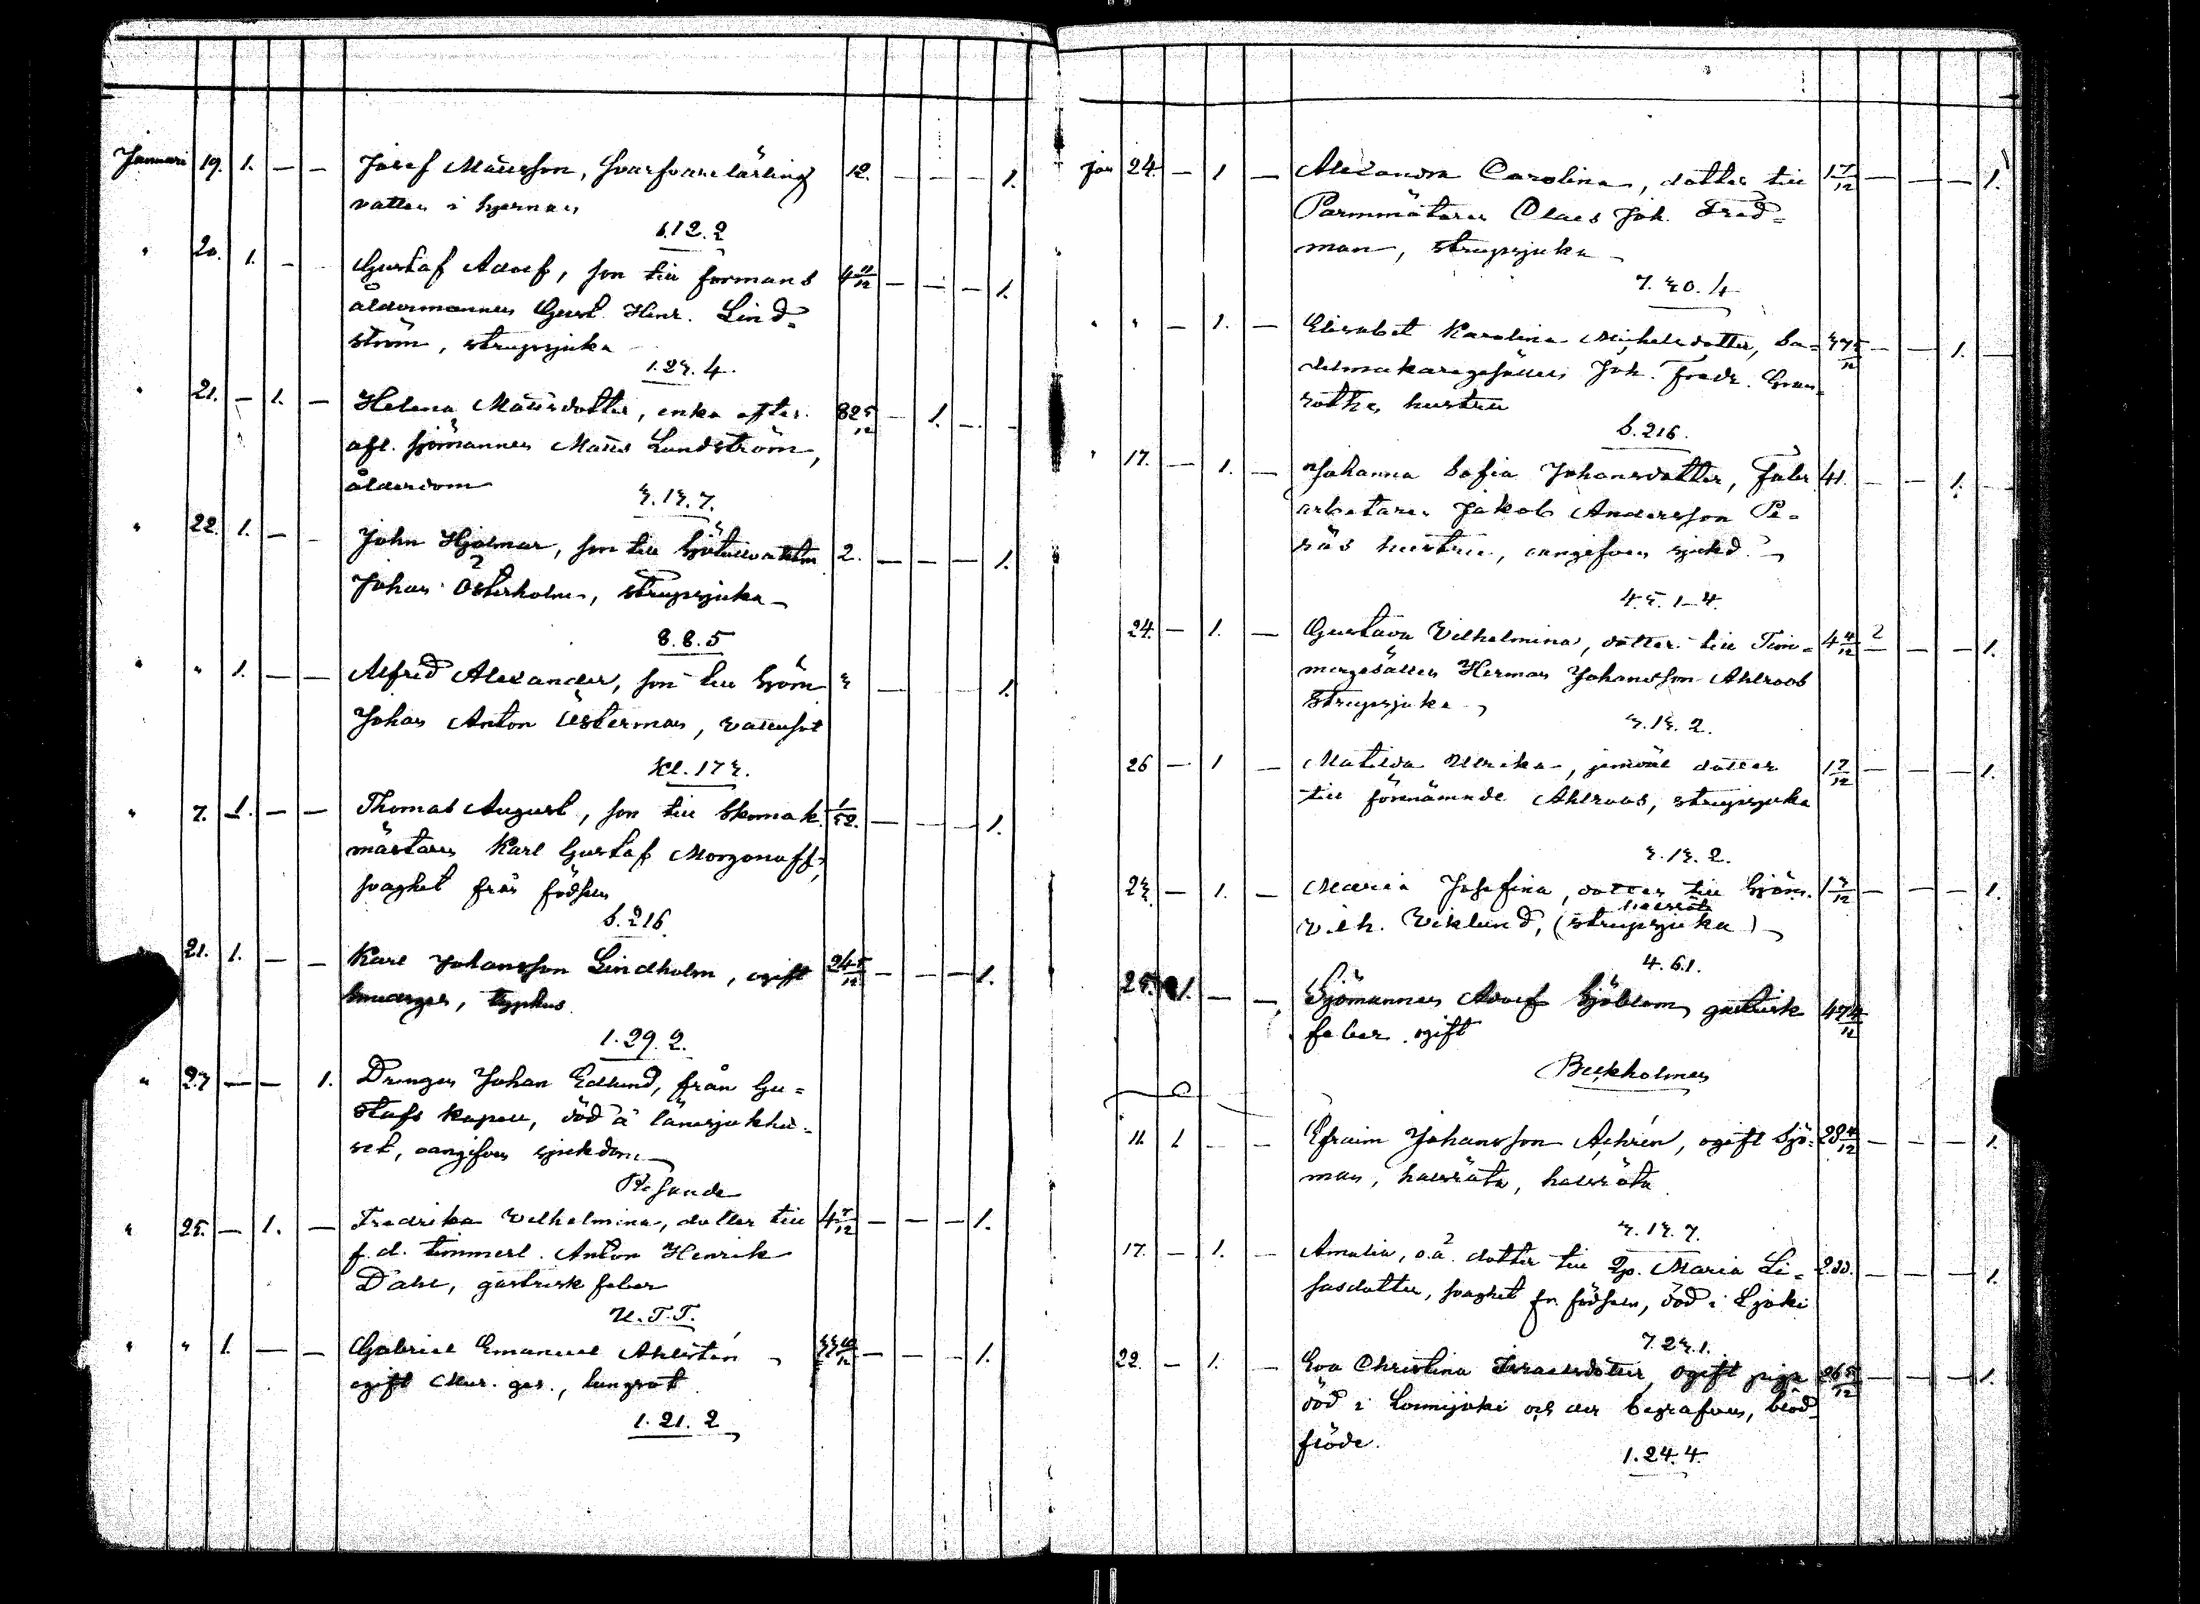 Januari 19. 1. — — Josef Mattsson, svarfvarelärling 12. — — — 1.
vatten i hjernan
6.12.2
" 20. 1. — Gustaf Adolf, son till formans 4 11/12 — — — 1.
åldermannen Gust. Henr. Lind=
ström, strupsjuka
1.23.4.
" 21. — 1. — Helena Mattsdotter, enka efter 82 5/12 — 1. — -
afl. sjömannen Matts Lundström,
ålderdom
3.13.7.
" 22. 1. — - John Hjalmar, son till Sjötullvaktm 2. — — — 1.
Johan Österholm, strupsjuka
8.8.5
" " 1. — — Alfred Alexander, son till Sjöm 3 — 1.
Johan Anton Österman, vattusot
Kl. 173.
" 7. 1. — — Thomas August, son till Skomak. 1/52. — — — 1.
mästaren Karl Gustaf Morgonoff,
svaghet från födseln
S. 216
21. 1. — — Karl Johansson Lindholm, ogift 24 5/12 — — — 1.
smedsges, typhus
1.29.2.
" 23 — — 1. Drengen Johan Edlund, från Gu=
stafs kapell, död å länesjukhu=
set, oangifven sjukdom
Resande
" 25. — 1. — Fredrika Vilhelmina, dotter till 4 7/12 — — — 1.
f.d. timmerl. Anton Henrik
Dahl, gastrisk feber
U.T.T.
" " 1. — — Gabriel Emanuel Ahlstén 33 10/12 — — — 1.
ogift Mur. ges., lungsot
1.21.2
jan 24. — 1 — Alexandra Carolina, dotter till 1 7/12 — — — 1.
Parmmätaren Claes Joh. Fred=
man, strupsjuka
7.30.4
" " — 1. — Elisabet Karolina Michelsdotter, Sa= 37 5/12 — — 1. —
delmakaregesällen Joh. Fredr. Gran=
roths hustru
S. 216.
" 17. — 1. — Johanna Sofia Johansdotter, Fabr. 41. — — 1. —
arbetaren Jakob Andersson Pe=
räs hustru, oangifven sjukd.
45.1-4.
24. — 1. — Gustava Vilhelmina, dotter till Tim= 4 4/12 2 — — — 1.
mergesällen Herman Johansson Ahlroos
strupsjuka
3.13.2.
26 — 1 — Matilda Ulrika, jemväl dotter 1 7/12 — — — 1.
till förenämnde Ahlroos, strupsjuka
3.13.2.
23. — 1. — Maria Josefina, dotter till Sjöm. 1 3/12 — — — 1.
halsröta
Vilh. Viklund, (strupsjuka)
4.61.
25. 1. — — Sjömannen Adolf Sjöblom, gastrisk 47 4/12
feber. ogift
Beckholmen
11. 1 — — Efraim Johansson Achrén, ogift Sjö= 28 4/12 — — — 1.
man, halsröta, halsröta
3.13.7.
17. — 1. — Amalia, o.ä. dotter till Qp. Maria Li= — — — 1.
sasdotter, svaghet fr. födseln, död i Sjoki
7.23.1.
22. — 1. — Eva Christina Israelsdotter, ogift piga 26 5/12 — — — 1.
död i Lomijoki och der begrafven, blod=
flöde.
1.24.4.